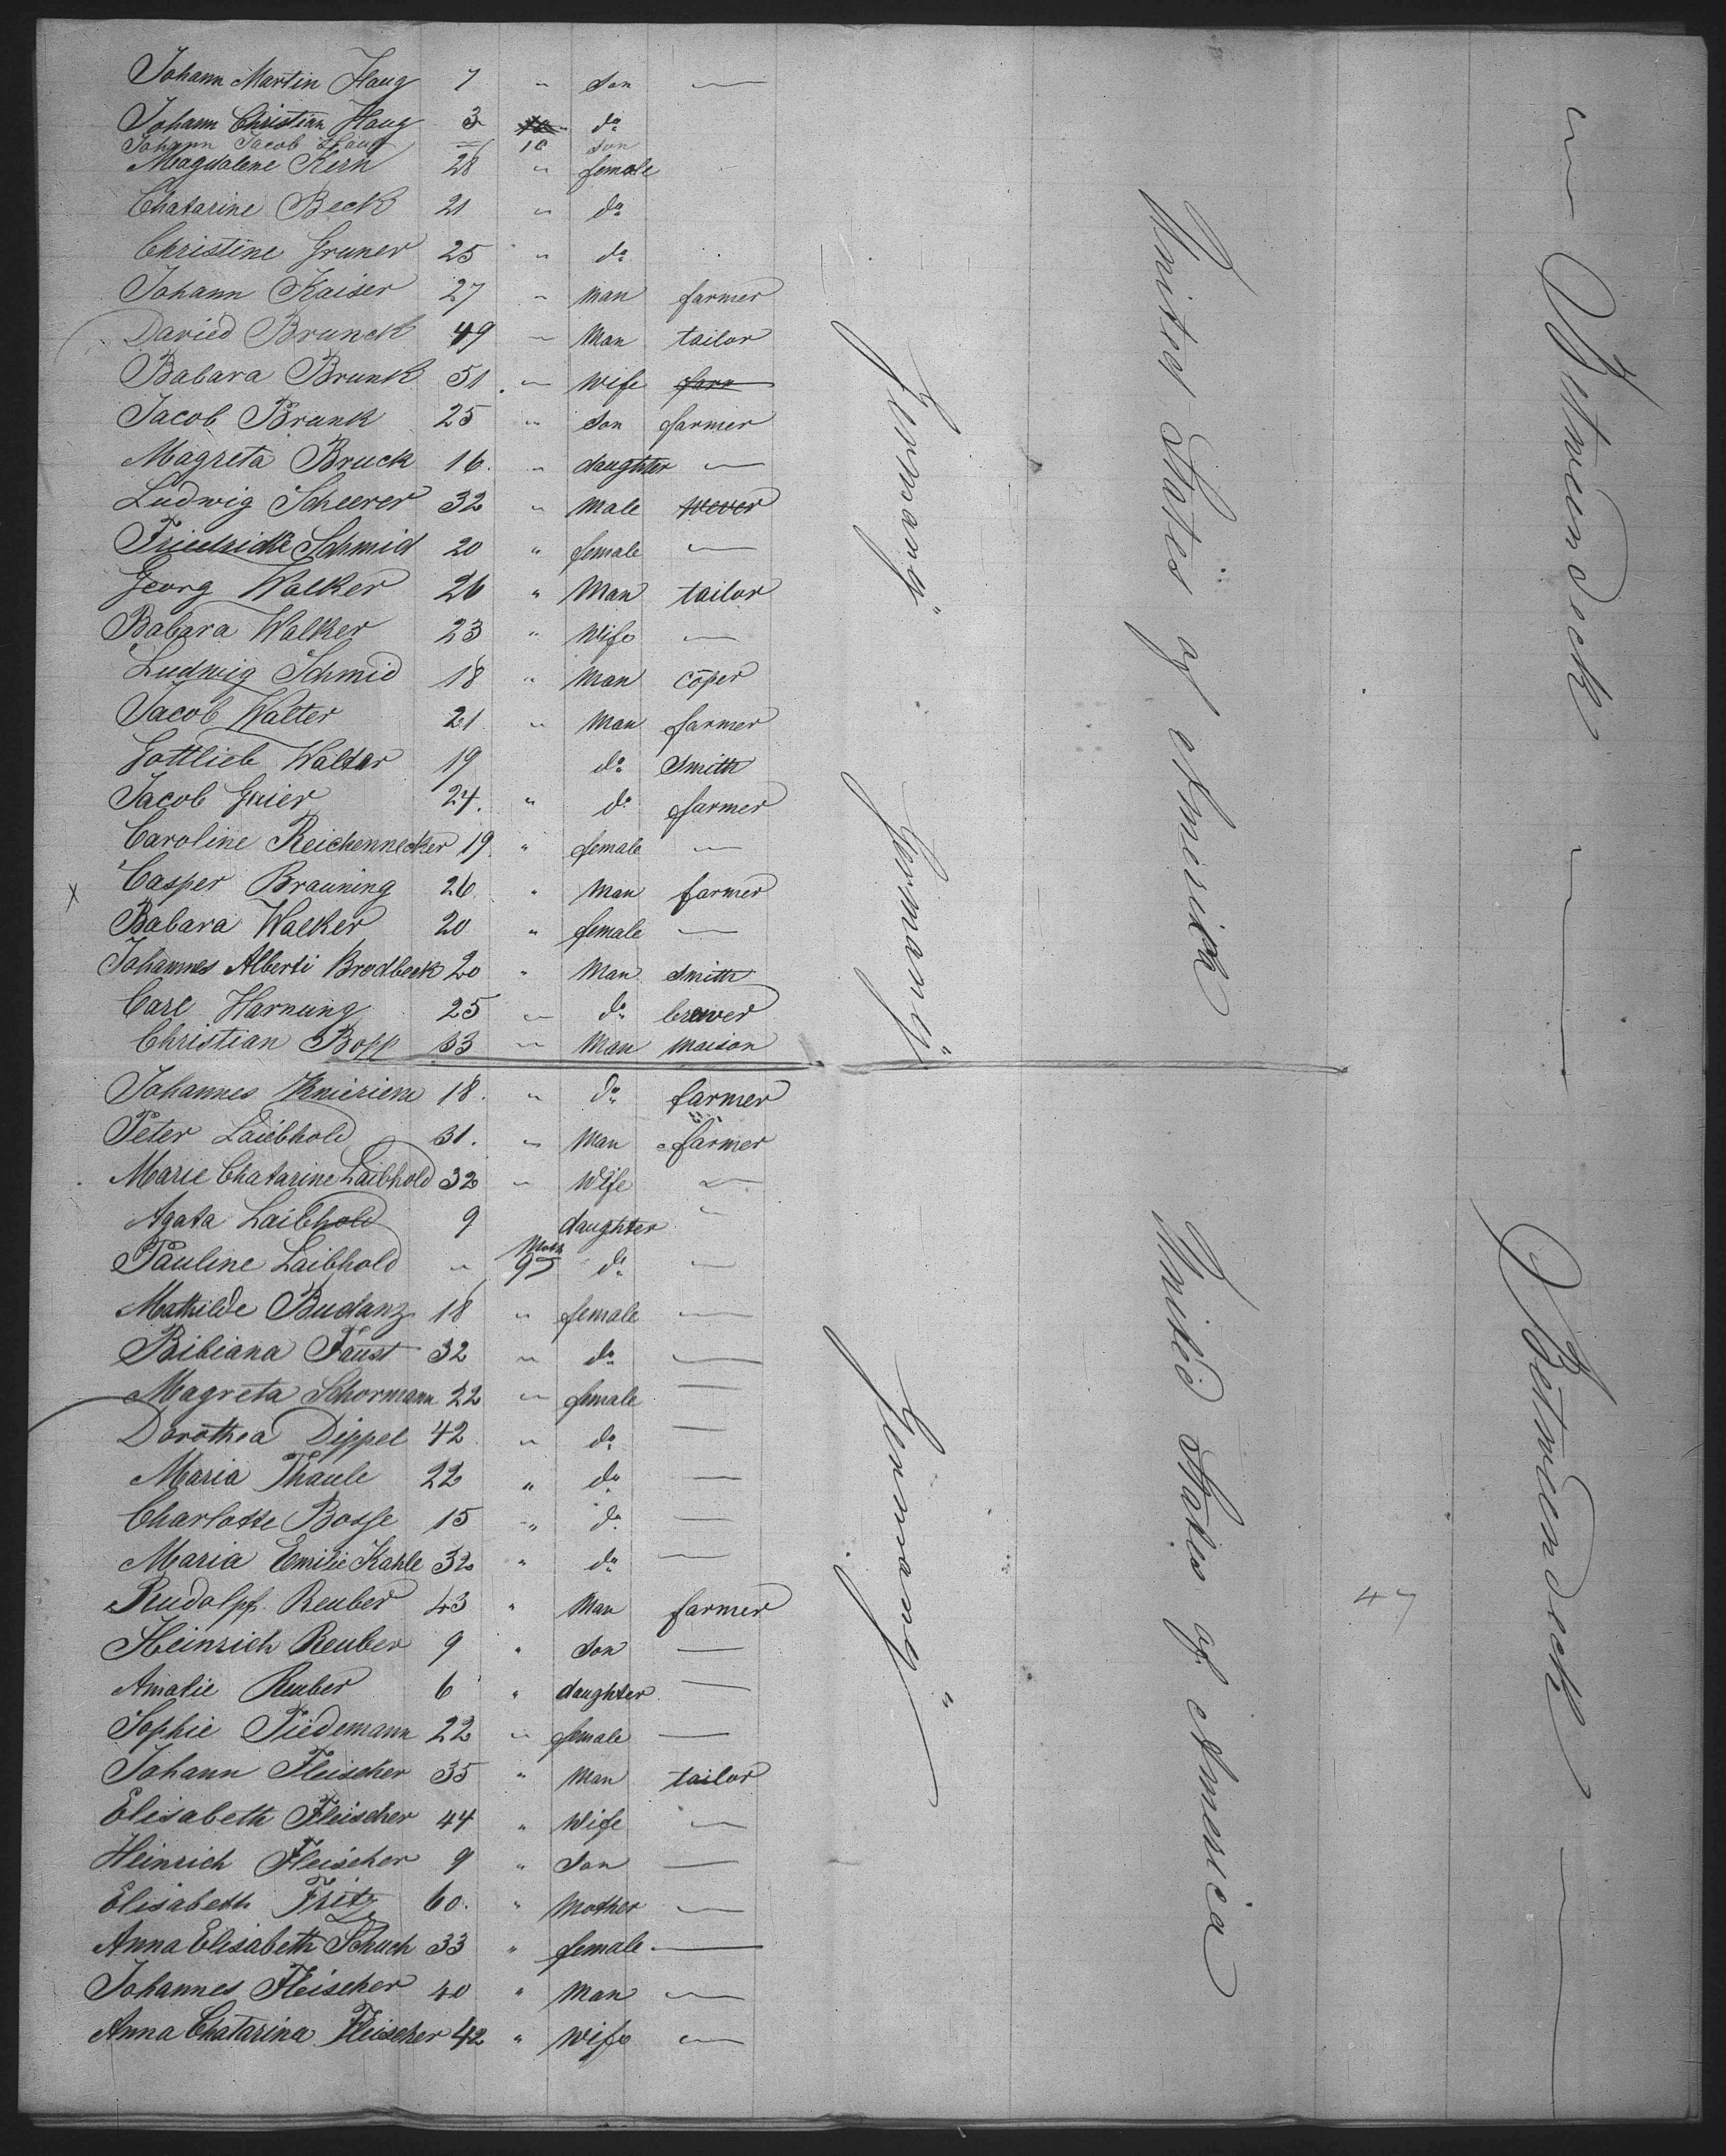 Johann Martin Haug 7 " son —
Johann Christian Haug 3 " do
Johann Jacob Haug — 10 son
Magdalene Kern 28 " female
Chatarine Beck 21 " do
Christine Gruner 25 " do
Johann Kaiser 27 " Man farmer
Daried Brunck 49 " Man tailor
Babara Brunk 51 " Wife farm
Jacob Brunk 25 " son farmer
Magreta Bruck 16 " daughter —
Ludwig Scheerer 32 " Male wever
Friedricke Schmid 20 " female —
Georg Walker 26 " Man tailor
Babara Walker 23 " Wife —
Ludwig Schmid 18 " Man cōper
Jacob Walter 21 " Man farmer
Gottlieb Walter 19 do Smith
Jacob Gaier 24 " do farmer
Caroline Reichennecker 19 " female —
x Casper Brauning 26 " Man farmer
Babara Walker 20 " female —
Johannes Alberti Brodbeck 20 " Man Smith
Carl Harnung 25 " do brewer
Christian Bopp 33 " Man maison
Johannes Knierieme 18 " do farmer
Peter Laibhold 31 " Man farmer
Marie Chatarine Laibhold 32 " Wife —
Agata Laibhold 9 daughter —
Pauline Laibhold " 9 do —
Mathilde Budanz 18 " female —
Bibiana Faust 32 " do —
Magreta Schormann 22 " female —
Dorothea Dippel 42 " do —
Maria Thaule 22 " do —
Charlotte Bosse 15 " do —
Maria Emilie Kahle 32 " do —
Rudolph Reuber 43 " Man farmer
Heinrich Reuber 9 " Son —
Amalie Reuber 6 " daughter —
Sophie Tiedemann 22 " female —
Johann Fleischer 35 " Man tailor
Elisabeth Fleischer 44 " Wife —
Heinrich Fleischer 9 " Son —
Elisabeth Fritz 60 " Mother —
Anna Elisabeth Schuch 33 " female —
Johannes Fleischer 40 " Man —
Anna Chatarina Fleischer 42 " Wife —
Germany
Germany
Germany
United States of America
United States of America
47
— Betweendeck —
Betweendeck —